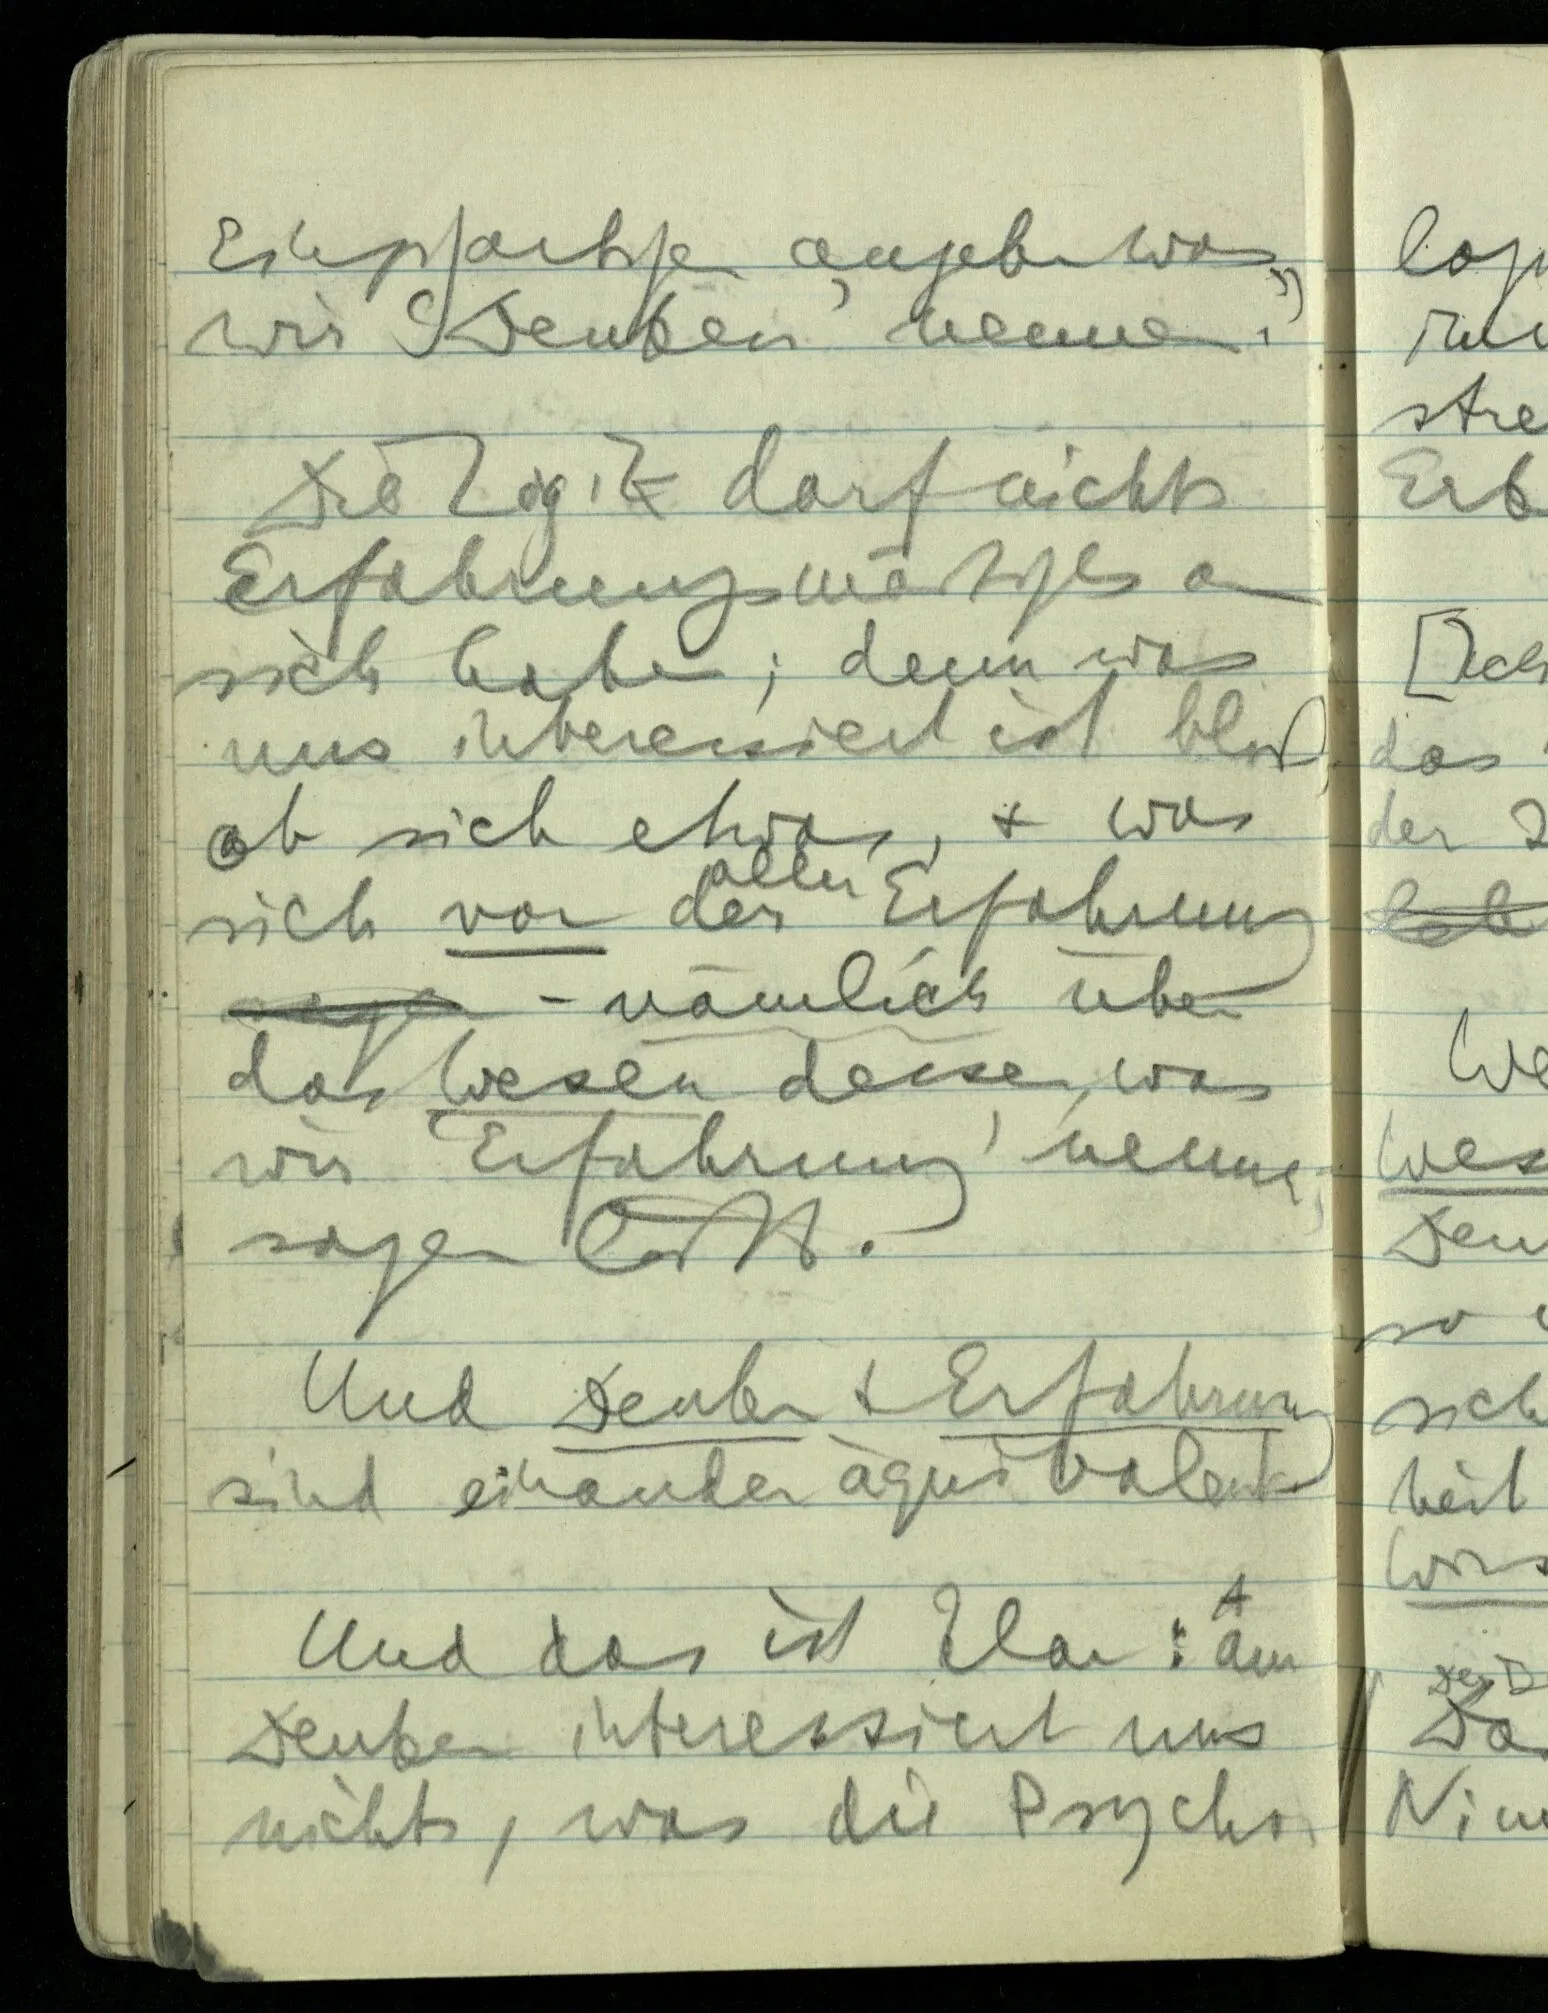 angeben was
wir ‘Denken’ nennen.”
Die Logik darf nichts
Erfahrungsmäßiges an
sich haben; denn was
uns interessiert ist bloß,
ob sich etwas, + was
aller
sich vor der Erfahrung
sagen – nämlich über
das Wesen dessen, was
wir ‘Erfahrung’ nennen,
sagen läßt.
Und Denken + Erfahrung
sind einander äquivalent
Und das ist klar: Am
Denken interessiert uns
nichts, was die Psycho-
stre
[Ich
das
der
We
Wes
Den
so
sich
heit
Da